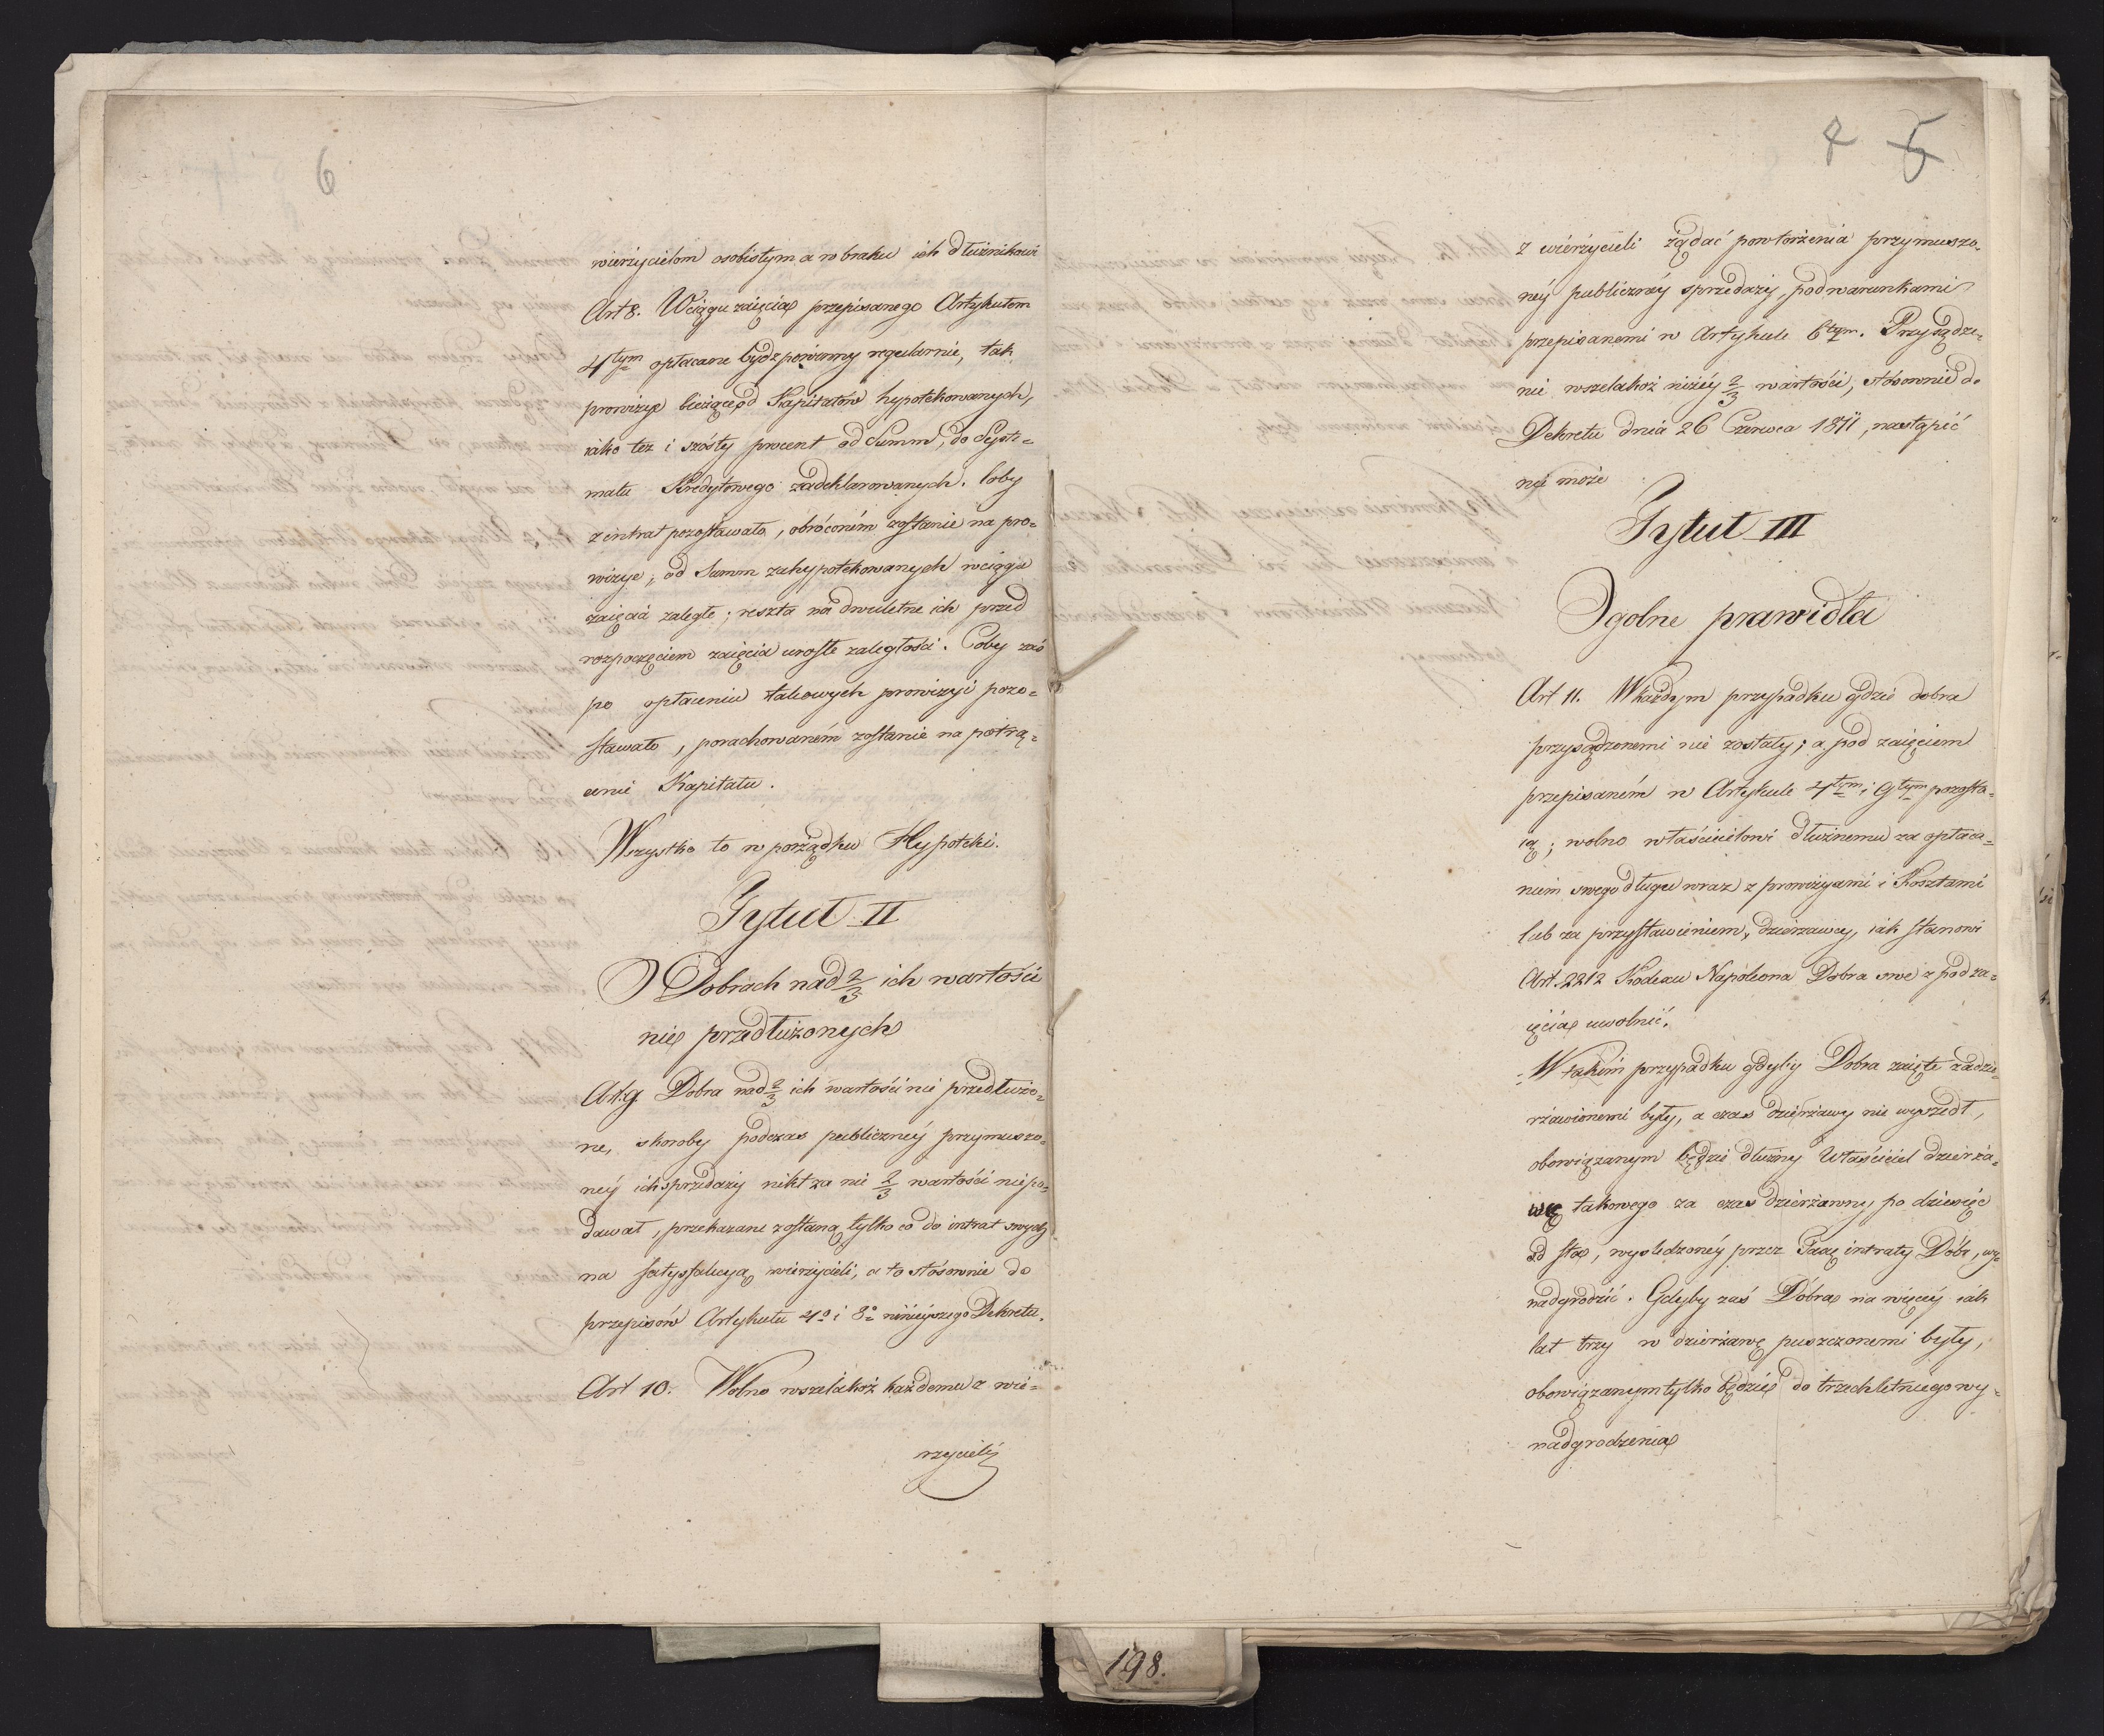 6
wierzycielom osobistym a w braku ich dłużnikowi
Art 8. Wciągu zaięcia przepisanego Artykułem
4tym opłacane bydz powinny regularnie, tak
prowizye bieżące od Kapitałów hypotekowanych,
iako też i szósty procent od Summ, do Syste=
matu Kredytowego zadeklarowanych. Coby
z intrat pozostawało, obróconém zostanie na pro=
wizye, od Summ zahypotekowanych wciągu
zaięcia zaległe; reszta na dwuletnie ich przed
rozpoczęciem zaięcia urosłe zaległości. Coby zaś
po opłaceniu takowych prowizyi pozo=
stawało, porachowaném zostanie na potrą=
cenie Kapitału.
Wszystko to w porządku Hypoteki.
Tytuł II
O Dobrach nad 2/3 ich wartości
nie przedłużonych
Art: 9. Dobra nad 2/3 ich wartości nie przedłużo=
ne, skoroby podczas publicznéy przymuszo=
néy ich sprzedaży nikt za nie 2/3 wartości niepo=
dawał, przekazane zostaną tylko co do intrat swych
na satysfakcyą wierzycieli, a to stósownie do
przepisów Artykułu 4o i 8o ninieyszego Dekretu.
Art 10. Wolno wszelakoż każdemu z wie=
rzycieli
7 5
z wierzycieli żądać powtorzenia przymuszo=
néy publicznéy sprzedaży, pod warunkami
przepisanemi w Artykule 6tym. Przysądze=
nie wszelakoż niżéy 2/3 wartości, stósownie do
Dekretu dnia 26 Czerwca 1811, nastąpić
nie może
Tytuł III
Ogolne prawidła
Art 11. W każdym przypadku gdzie dobra
przysądzonemi nie zostały; a pod zaięciem
przepisaném w Artykule 4tym i 9tym pozosta=
ią; wolno właścicielowi dłużnemu za opłace=
niem swego długu wraz z prowizyami i Kosztami
lub za przystawieniem, dzierżawcy, iak stanowi
Art. 2212 Kodexu Napoleona Dobra swe z pod za=
ięcia uwolnić.
W takim przypadku gdyby Dobra zaięte zadzie=
rżawionemi były, a czas dzierżawy nie wyszedł,
obowiązanym będzie dłużny Właściciel dzierża=
wcę takowego za czas dzierżawny, po dziesięć
od sta, wysledzonéy przez Taxę intraty Dóbr, wy=
nadgrodzić. Gdyby zaś Dobra na więcéy iak
lat trzy w dzierżawę puszczonemi były,
obowiązanym tylko będzie do trzechletniego wy=
nadgrodzenia
198.